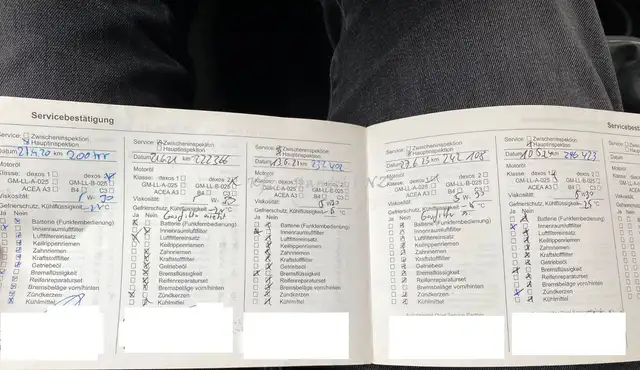 Servicebestätigung
Service: Zwischeninspektion
Hauptinspektion
Datum km
Motoröl
Klasse: dexos 1 dexos 2
GM-LL-A-025 GM-LL-B-025
ACEA A3 B4 C3
Viskosität: W-
Gefrierschutz, Kühlflüssigkeit °C
Ja Nein
Batterie (Funkfernbedienung)
Innenraumluftfilter
Luftfiltereinsatz
Keilrippenriemen
Zahnriemen
Kraftstofffilter
Getriebeöl
Bremsflüssigkeit
Reifenreparaturset
Bremsbeläge vorn/hinten
Zündkerzen
Kühlmittel
Service: Zwischeninspektion
Hauptinspektion
Datum km 222366
Motoröl
Klasse: dexos 1 dexos 2
GM-LL-A-025 GM-LL-B-025
ACEA A3 B4 C3
Viskosität: W-
Gefrierschutz, Kühlflüssigkeit °C
Ja Nein
Batterie (Funkfernbedienung)
Innenraumluftfilter
Luftfiltereinsatz
Keilrippenriemen
Zahnriemen
Kraftstofffilter
Getriebeöl
Bremsflüssigkeit
Reifenreparaturset
Bremsbeläge vorn/hinten
Zündkerzen
Kühlmittel
Service: Zwischeninspektion
Hauptinspektion
Datum km
Motoröl
Klasse: dexos 1 dexos 2
GM-LL-A-025 GM-LL-B-025
ACEA A3 B4 C3
Viskosität: W-
Gefrierschutz, Kühlflüssigkeit °C
Ja Nein
Batterie (Funkfernbedienung)
Innenraumluftfilter
Luftfiltereinsatz
Keilrippenriemen
Zahnriemen
Kraftstofffilter
Getriebeöl
Bremsflüssigkeit
Reifenreparaturset
Bremsbeläge vorn/hinten
Zündkerzen
Kühlmittel
Service: Zwischeninspektion
Hauptinspektion
Datum 27.6.23 km 242 108
Motoröl
Klasse: dexos 1 dexos 2
GM-LL-A-025 GM-LL-B-025
ACEA A3 B4 C3
Viskosität: W-
Gefrierschutz, Kühlflüssigkeit °C
Ja Nein
Batterie (Funkfernbedienung)
Innenraumluftfilter
Luftfiltereinsatz
Keilrippenriemen
Zahnriemen
Kraftstofffilter
Getriebeöl
Bremsflüssigkeit
Reifenreparaturset
Bremsbeläge vorn/hinten
Zündkerzen
Kühlmittel
Servicebestä
Service: Zwischeninspektion
Hauptinspektion
Datum km 246 423
Motoröl
Klasse: dexos 1 dexos 2
GM-LL-A-025 GM-LL-B-025
ACEA A3 B4 C3
Viskosität:
Gefrierschutz, Kühlflüssigkeit °C
Ja Nein
Batterie (Funkfernbedienung)
Innenraumluftfilter
Luftfiltereinsatz
Keilrippenriemen
Zahnriemen
Kraftstofffilter
Getriebeöl
Bremsflüssigkeit
Reifenreparaturset
Bremsbeläge vorn/hinten
Zündkerzen
Kühlmittel